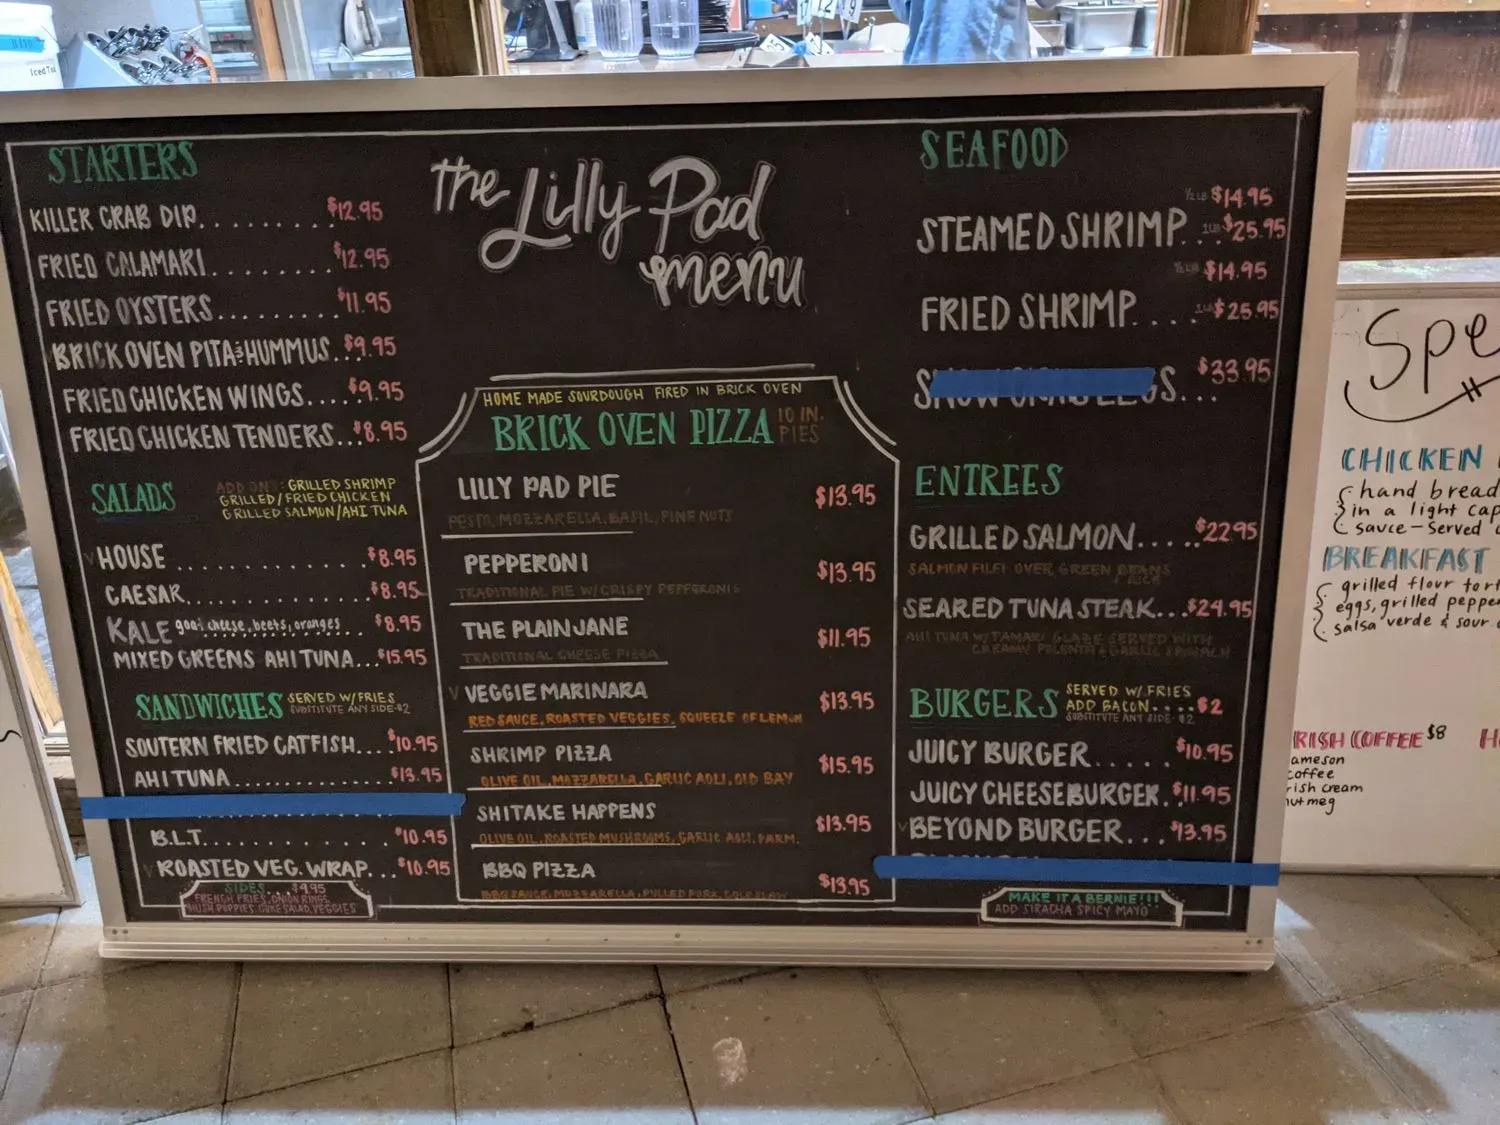 Iced Tea
STARTERS
KILLER CRAB DIP........ $12.95
FRIED CALAMARI........ $12.95
FRIED OYSTERS......... $11.95
BRICK OVEN PITA & HUMMUS...$9.95
FRIED CHICKEN WINGS...$9.95
FRIED CHICKEN TENDERS...$8.95
SALADS
ADD ON: GRILLED SHRIMP
GRILLED/FRIED CHICKEN
GRILLED SALMON/AHI TUNA
V HOUSE ............... $8.95
CAESAR............... $8.95
KALE goat cheese, beets, oranges $8.95
MIXED GREENS AHI TUNA...$15.95
SANDWICHES SERVED W/FRIES
SUBSTITUTE ANY SIDE-$2
SOUTERN FRIED CATFISH....$10.95
AHI TUNA ............... $13.95
B.L.T. ............... $10.95
V ROASTED VEG. WRAP...$10.95
SIDES...$4.95
FRENCH FRIES, ONION RINGS,
HUSH PUPPIES, CUKE SALAD, VEGGIES
the Lilly Pad
menu
HOME MADE SOURDOUGH FIRED IN BRICK OVEN
BRICK OVEN PIZZA 10 IN. PIES
LILLY PAD PIE $13.95
PESTO, MOZZARELLA, BASIL, PINE NUTS
PEPPERONI $13.95
TRADITIONAL PIE W/CRISPY PEPPERONIS
THE PLAIN JANE $11.95
TRADITIONAL CHEESE PIZZA
V VEGGIE MARINARA $13.95
RED SAUCE, ROASTED VEGGIES, SQUEEZE OF LEMON
SHRIMP PIZZA $15.95
OLIVE OIL, MAZZARELLA, GARLIC AOLI, OLD BAY
SHITAKE HAPPENS $13.95
OLIVE OIL, ROASTED MUSHROOMS, GARLIC AOLI, PARM.
BBQ PIZZA $13.95
BBQ SAUCE, MOZZARELLA, PULLED PORK, COLE SLAW
SEAFOOD
½ LB $14.95
STEAMED SHRIMP...1LB $25.95
½ LB $14.95
FRIED SHRIMP....1LB $25.95
SNOW CRAB LEGS... $33.95
ENTREES
GRILLED SALMON.....$22.95
SALMON FILET OVER GREEN BEANS
& RICE
SEARED TUNA STEAK...$24.95
AHI TUNA W/ TAMARI GLAZE SERVED WITH
CREAMY POLENTA & GARLIC SPINACH
BURGERS SERVED W/ FRIES
ADD BACON....$2
SUBSTITUTE ANY SIDE-$2
JUICY BURGER...... $10.95
JUICY CHEESEBURGER..$11.95
V BEYOND BURGER... $13.95
MAKE IT A BERNIE!!!
ADD SIRACHA SPICY MAYO
Spe
CHICKEN
hand bread
in a light cap
sauce-served
BREAKFAST
grilled flour tort
eggs, grilled pepper
salsa verde & sour
RISH COFFEE $8
ameson
coffee
rish cream
nutmeg